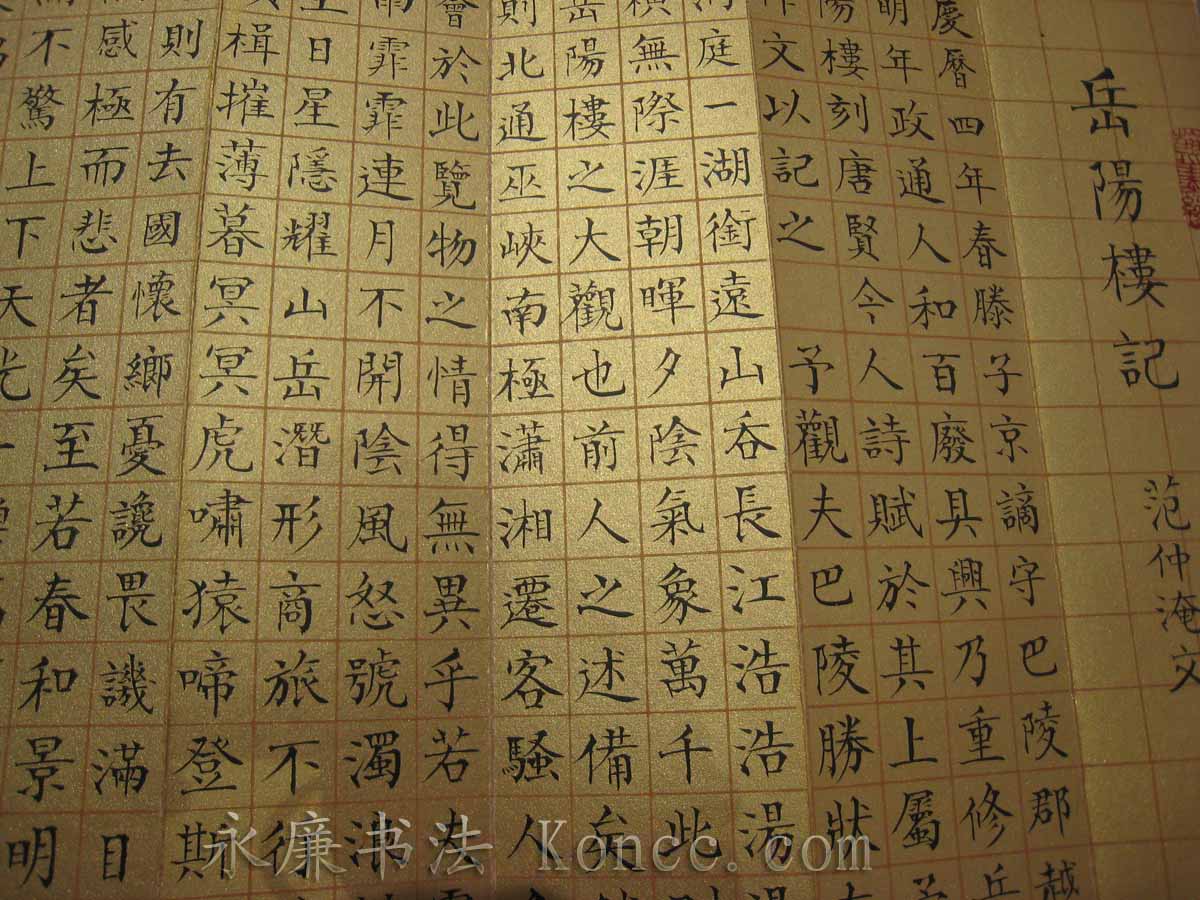 岳陽樓記
范仲淹文
慶曆四年春滕子京謫守巴陵郡越
明年政通人和百廢具興乃重修岳
陽樓刻唐賢今人詩賦於其上屬予
作文以記之
予觀夫巴陵勝狀在
洞庭一湖銜遠山吞長江浩浩湯湯
橫無際涯朝暉夕陰氣象萬千此則
岳陽樓之大觀也前人之述備矣然
則北通巫峽南極瀟湘遷客騷人
會於此覽物之情得無異乎若夫
雨霏霏連月不開陰風怒號濁浪
日星隱耀山岳潛形商旅不行
楫摧薄暮冥冥虎嘯猿啼登斯
則有去國懷鄉憂讒畏譏滿目
感極而悲者矣至若春和景明
不驚上下天光一
永廉书法 Koncc.com